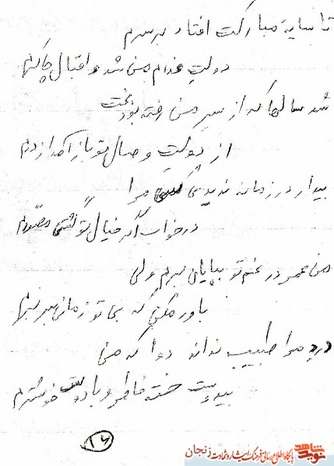 تا سایهٔ مبارکت افتاد بر سرم
دولت غلام من شد و اقبال چاکرم
شد سالها که از سر من رفته بود بخت
از دولت وصال تو باز آمد از درم
بیدار در زمانه ندیدی کسی مرا
در خواب اگر خیال تو گشتی مصورم
من عمر در غم تو بپایان برم ولی
باور مکن که بی تو زمانی بسر برم
درد مرا طبیب نداند دوا که من
بی دوست خسته خاطر و با دوست خوشترم
۱۶
نوید شاهد
پایگاه اطلاع رسانی فرهنگ ایثار و شهادت زنجان